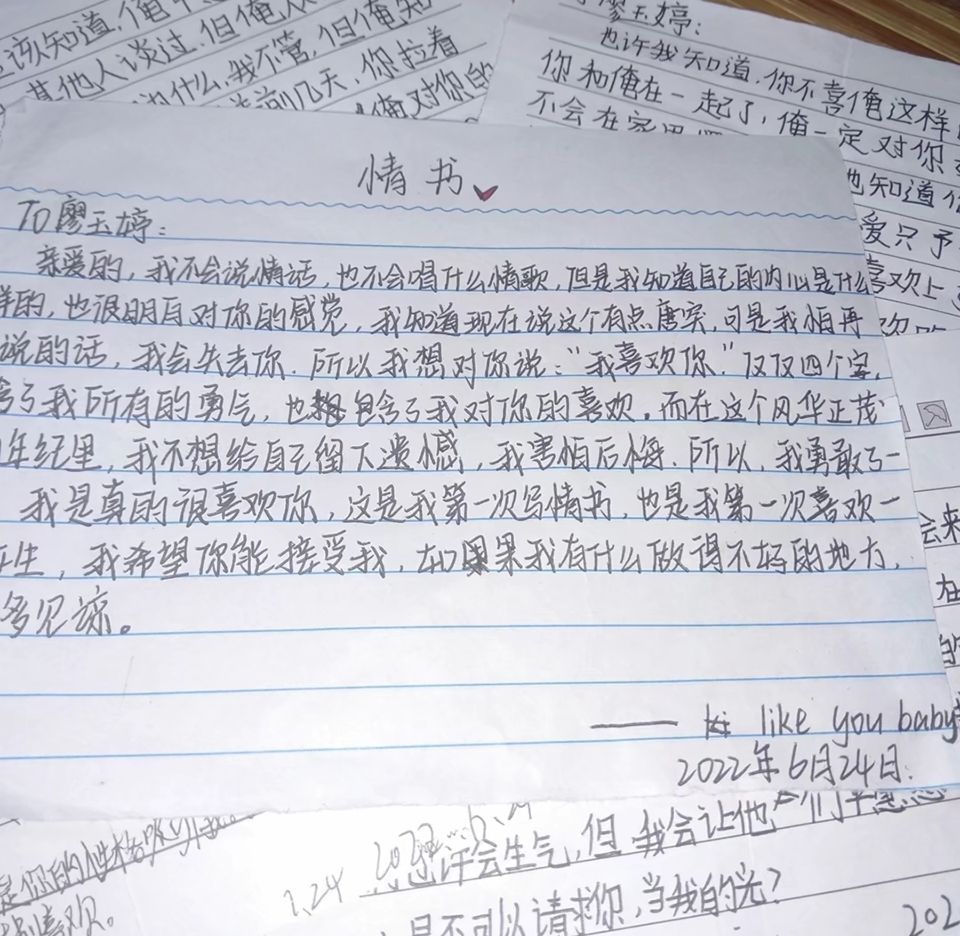 该知道,俺
其他人谈过.但俺
为什么,我不管,但俺
前几天,你拉着
俺对你的
廖玉婷:
也许我知道.你不喜俺这样
你和俺在一起了,俺一定对你
不会在
也知道
爱只予
喜欢上
情书
To廖玉婷:
亲爱的,我不会说情话,也不会唱什么情歌,但是我知道自己的内心是什么
样的,也很明白对你的感觉,我知道现在说这个有点唐突,可是我怕再
说的话,我会失去你.所以我想对你说:"我喜欢你."仅仅四个字,
含了我所有的勇气,也包含了我对你的喜欢.而在这个风华正茂
年纪里,我不想给自己留下遗憾,我害怕后悔.所以,我勇敢了一
我是真的很喜欢你,这是我第一次写情书,也是我第一次喜欢一
生,我希望你能接受我,如果我有什么做得不好的地方,
多见谅。
—— like you baby
2022年6月24日.
会来
在
的
是你的性格
喜欢。
1.24
许会生气,但我会让他们
是不可以请求你,当我的光?
202